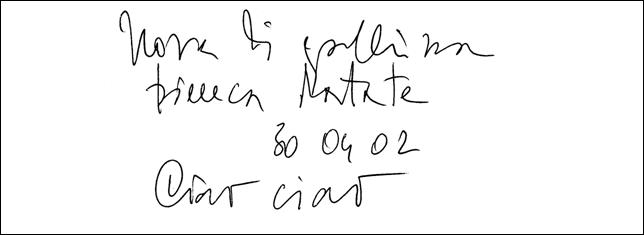 Uova di gallina
bianca Datate
30 04 02
Ciao ciao